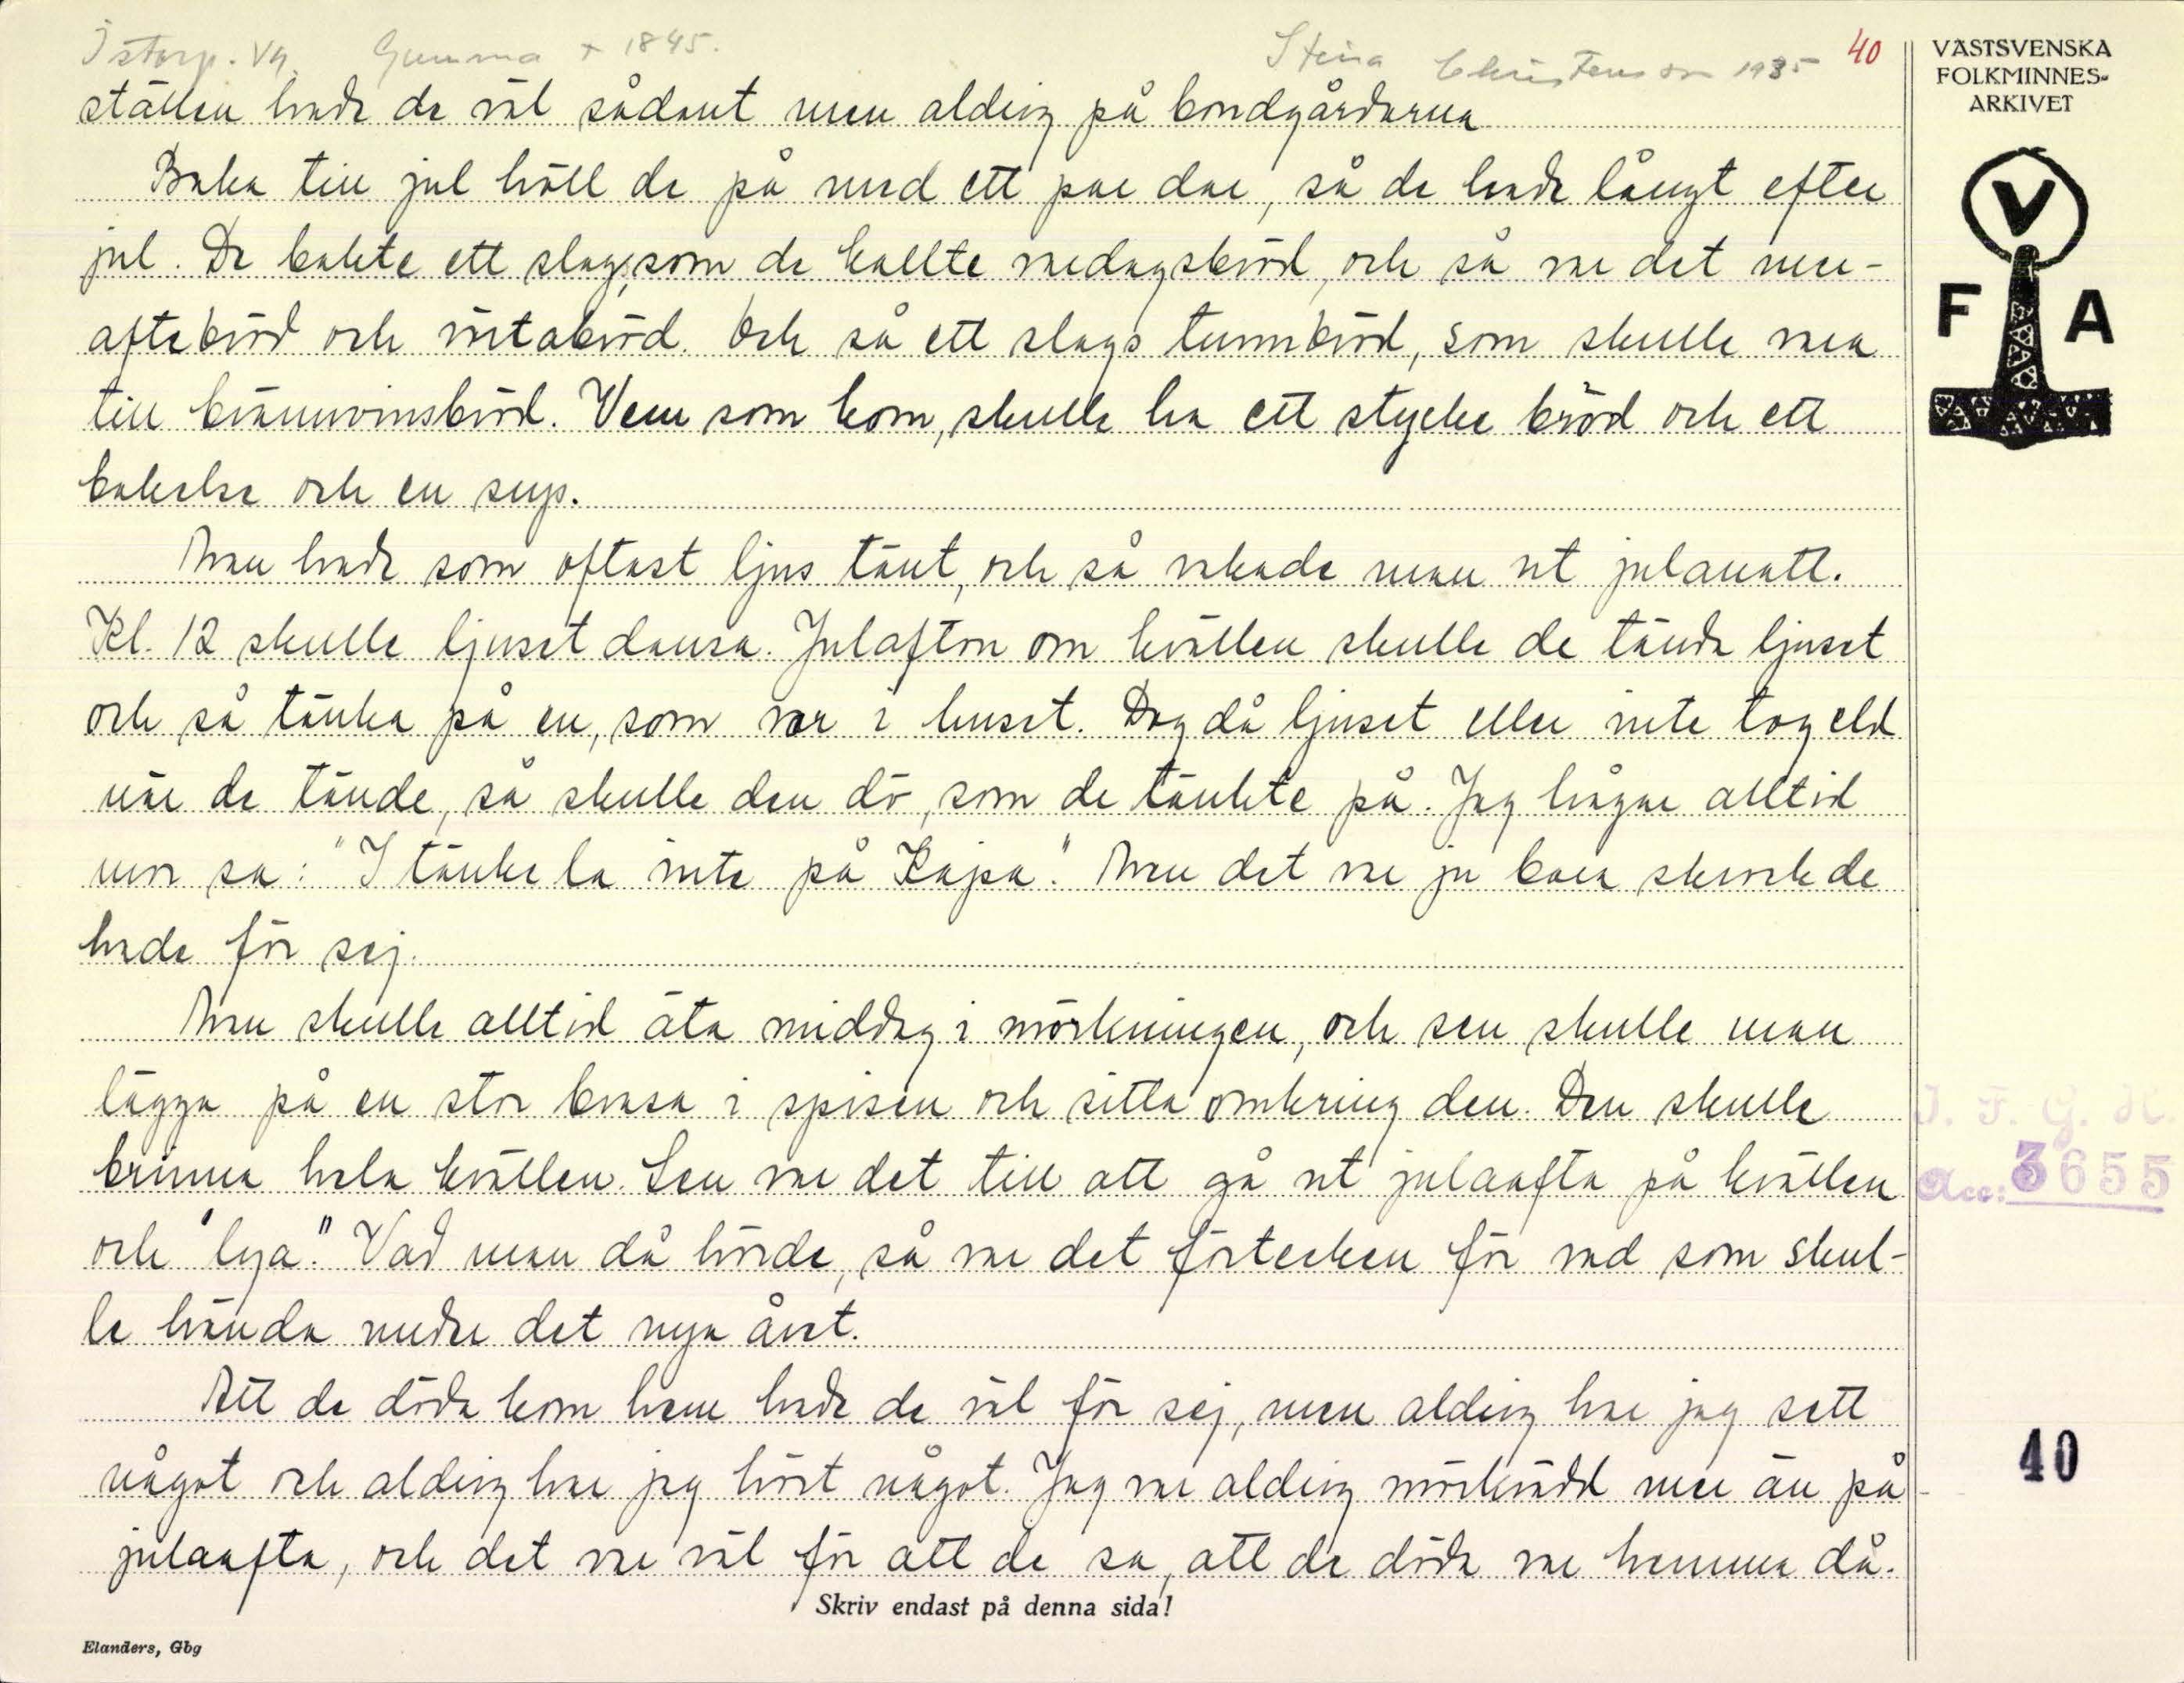 Istorp. Vg. Gumma * 1845. Stina Christenson 1935 40
ställen hade de väl sådant men alldrig på bondgårdarna
Baka till jul höll de på med ett par dar, så de hade långt efter
jul. De bakte ett slag, som de kallte medagsbröd, och så va det mer-
aftebröd och vörtabröd. Och så ett slags tunnbröd, som skulle vara
till brännvinsbröd. Vem som kom, skulle ha ett stycke bröd och ett
bakelse och en sup.
Man hade som oftast ljus tänt, och så vakade man ut julanatt.
Kl. 12 skulle ljuset dansa. Julafton om kvällen skulle de tända ljuset
och så tänka på en, som var i huset. Dog då ljuset eller inte tog eld
när de tände, så skulle den dö, som de tänkte på. Jag hågar alltid
mor sa: "I tänke la inte på Kajsa." Men det va ju bara skrock de
hade för sej.
Man skulle alltid äta middag i mörkningen, och sen skulle man
lägga på en stor brasa i spisen och sitta omkring den. Den skulle
brinna hela kvällen. Sen va det till att gå ut julaafta på kvällen
och "lya". Vad man då hörde, så va det förtecken för vad som skul-
le hända under det nya året.
Att de döda kom hem hade de väl för sej, men aldrig har jag sett
något och aldrig har jag hört något. Jag va aldrig mörkrädd mer än på
julaafta, och det va väl för att de sa, att de döda va hemma då.
Skriv endast på denna sida!
Elanders, Gbg
VÄSTSVENSKA
FOLKMINNES-
ARKIVET
V
F A
I. F. G. H.
Acc: 3655
40